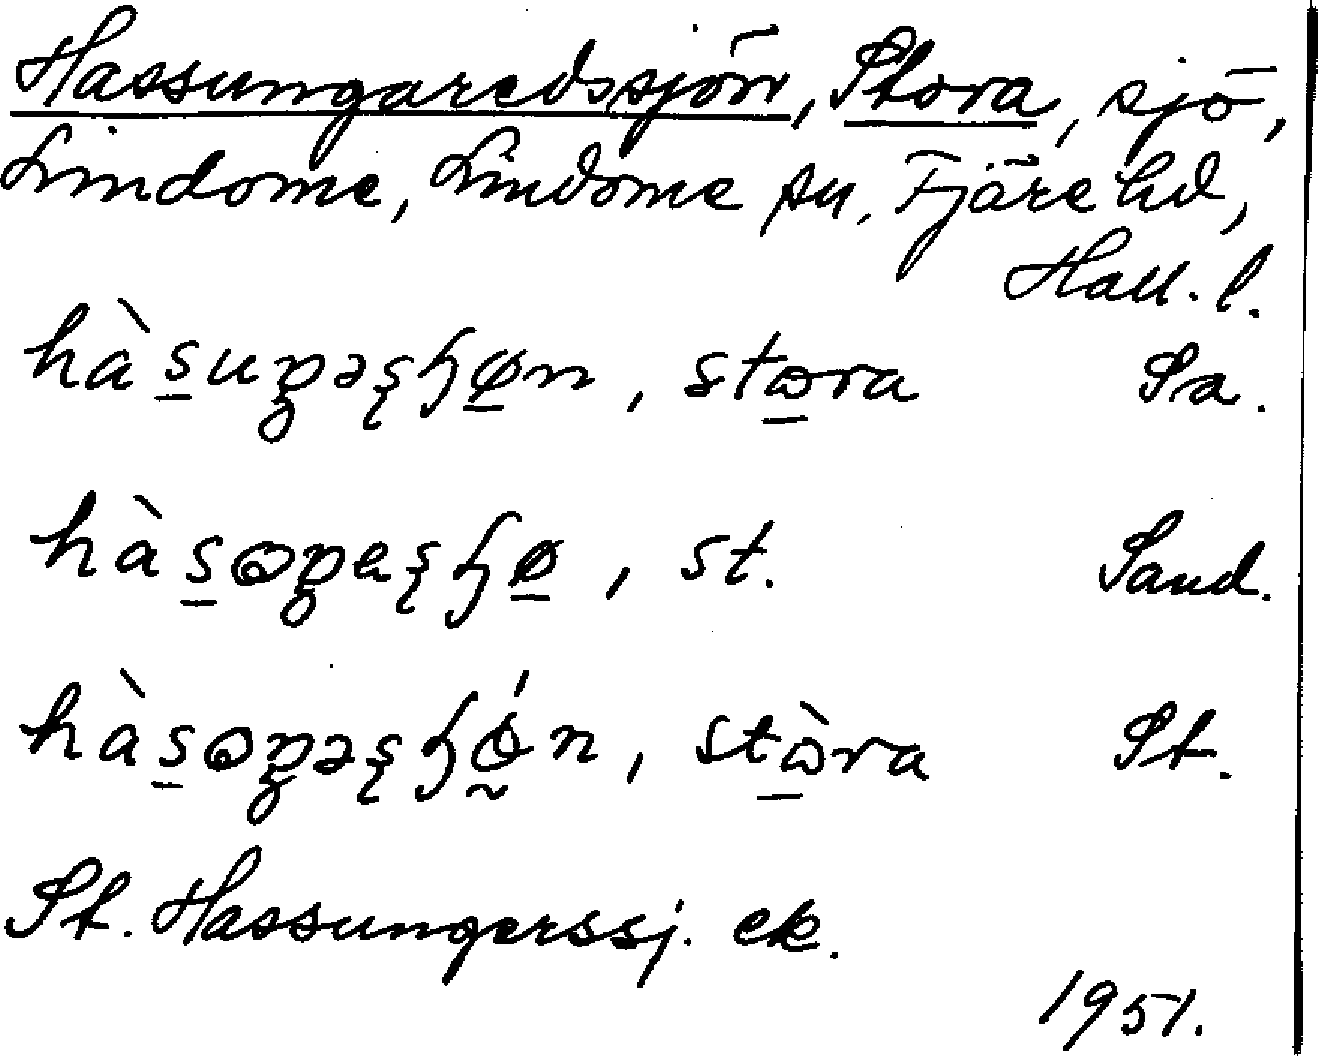 Hassungaredssjön, Stora, sjö,
Lindome, Lindome sn, Fjäre hd,
Hall. l.
hàs̱uŋəʂɧø̱n, stɷ̱ra Sa.
hàs̱ɷŋeʂɧø̱, st. Sand.
hàs̱ɷŋəʂɧǿ̰n, stɷ̱̀ra St.
St. Hassungerssj. ek.
1951.